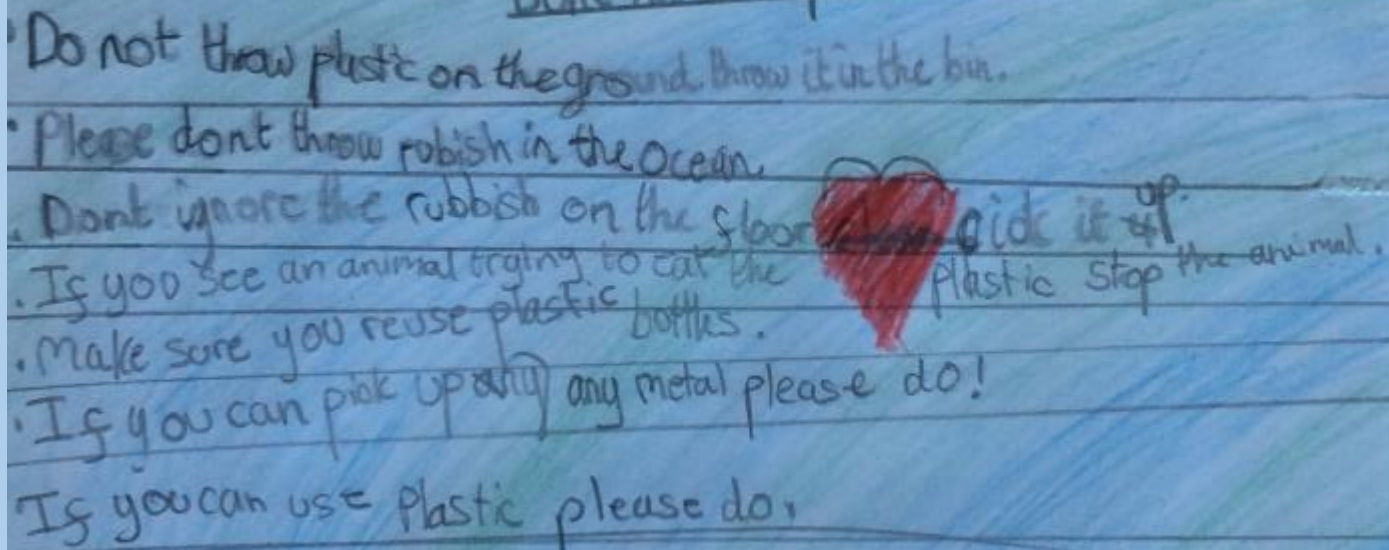 Do not throw plastic on the ground. throw it in the bin.
Please dont throw robish in the ocean.
Dont ignore the rubbish on the floor pick it up.
If yoo see an animal trying to eat the plastic stop the animal.
Make sure you reuse plastic bottles.
If you can pick up any metal please do!
If you can use plastic please do.